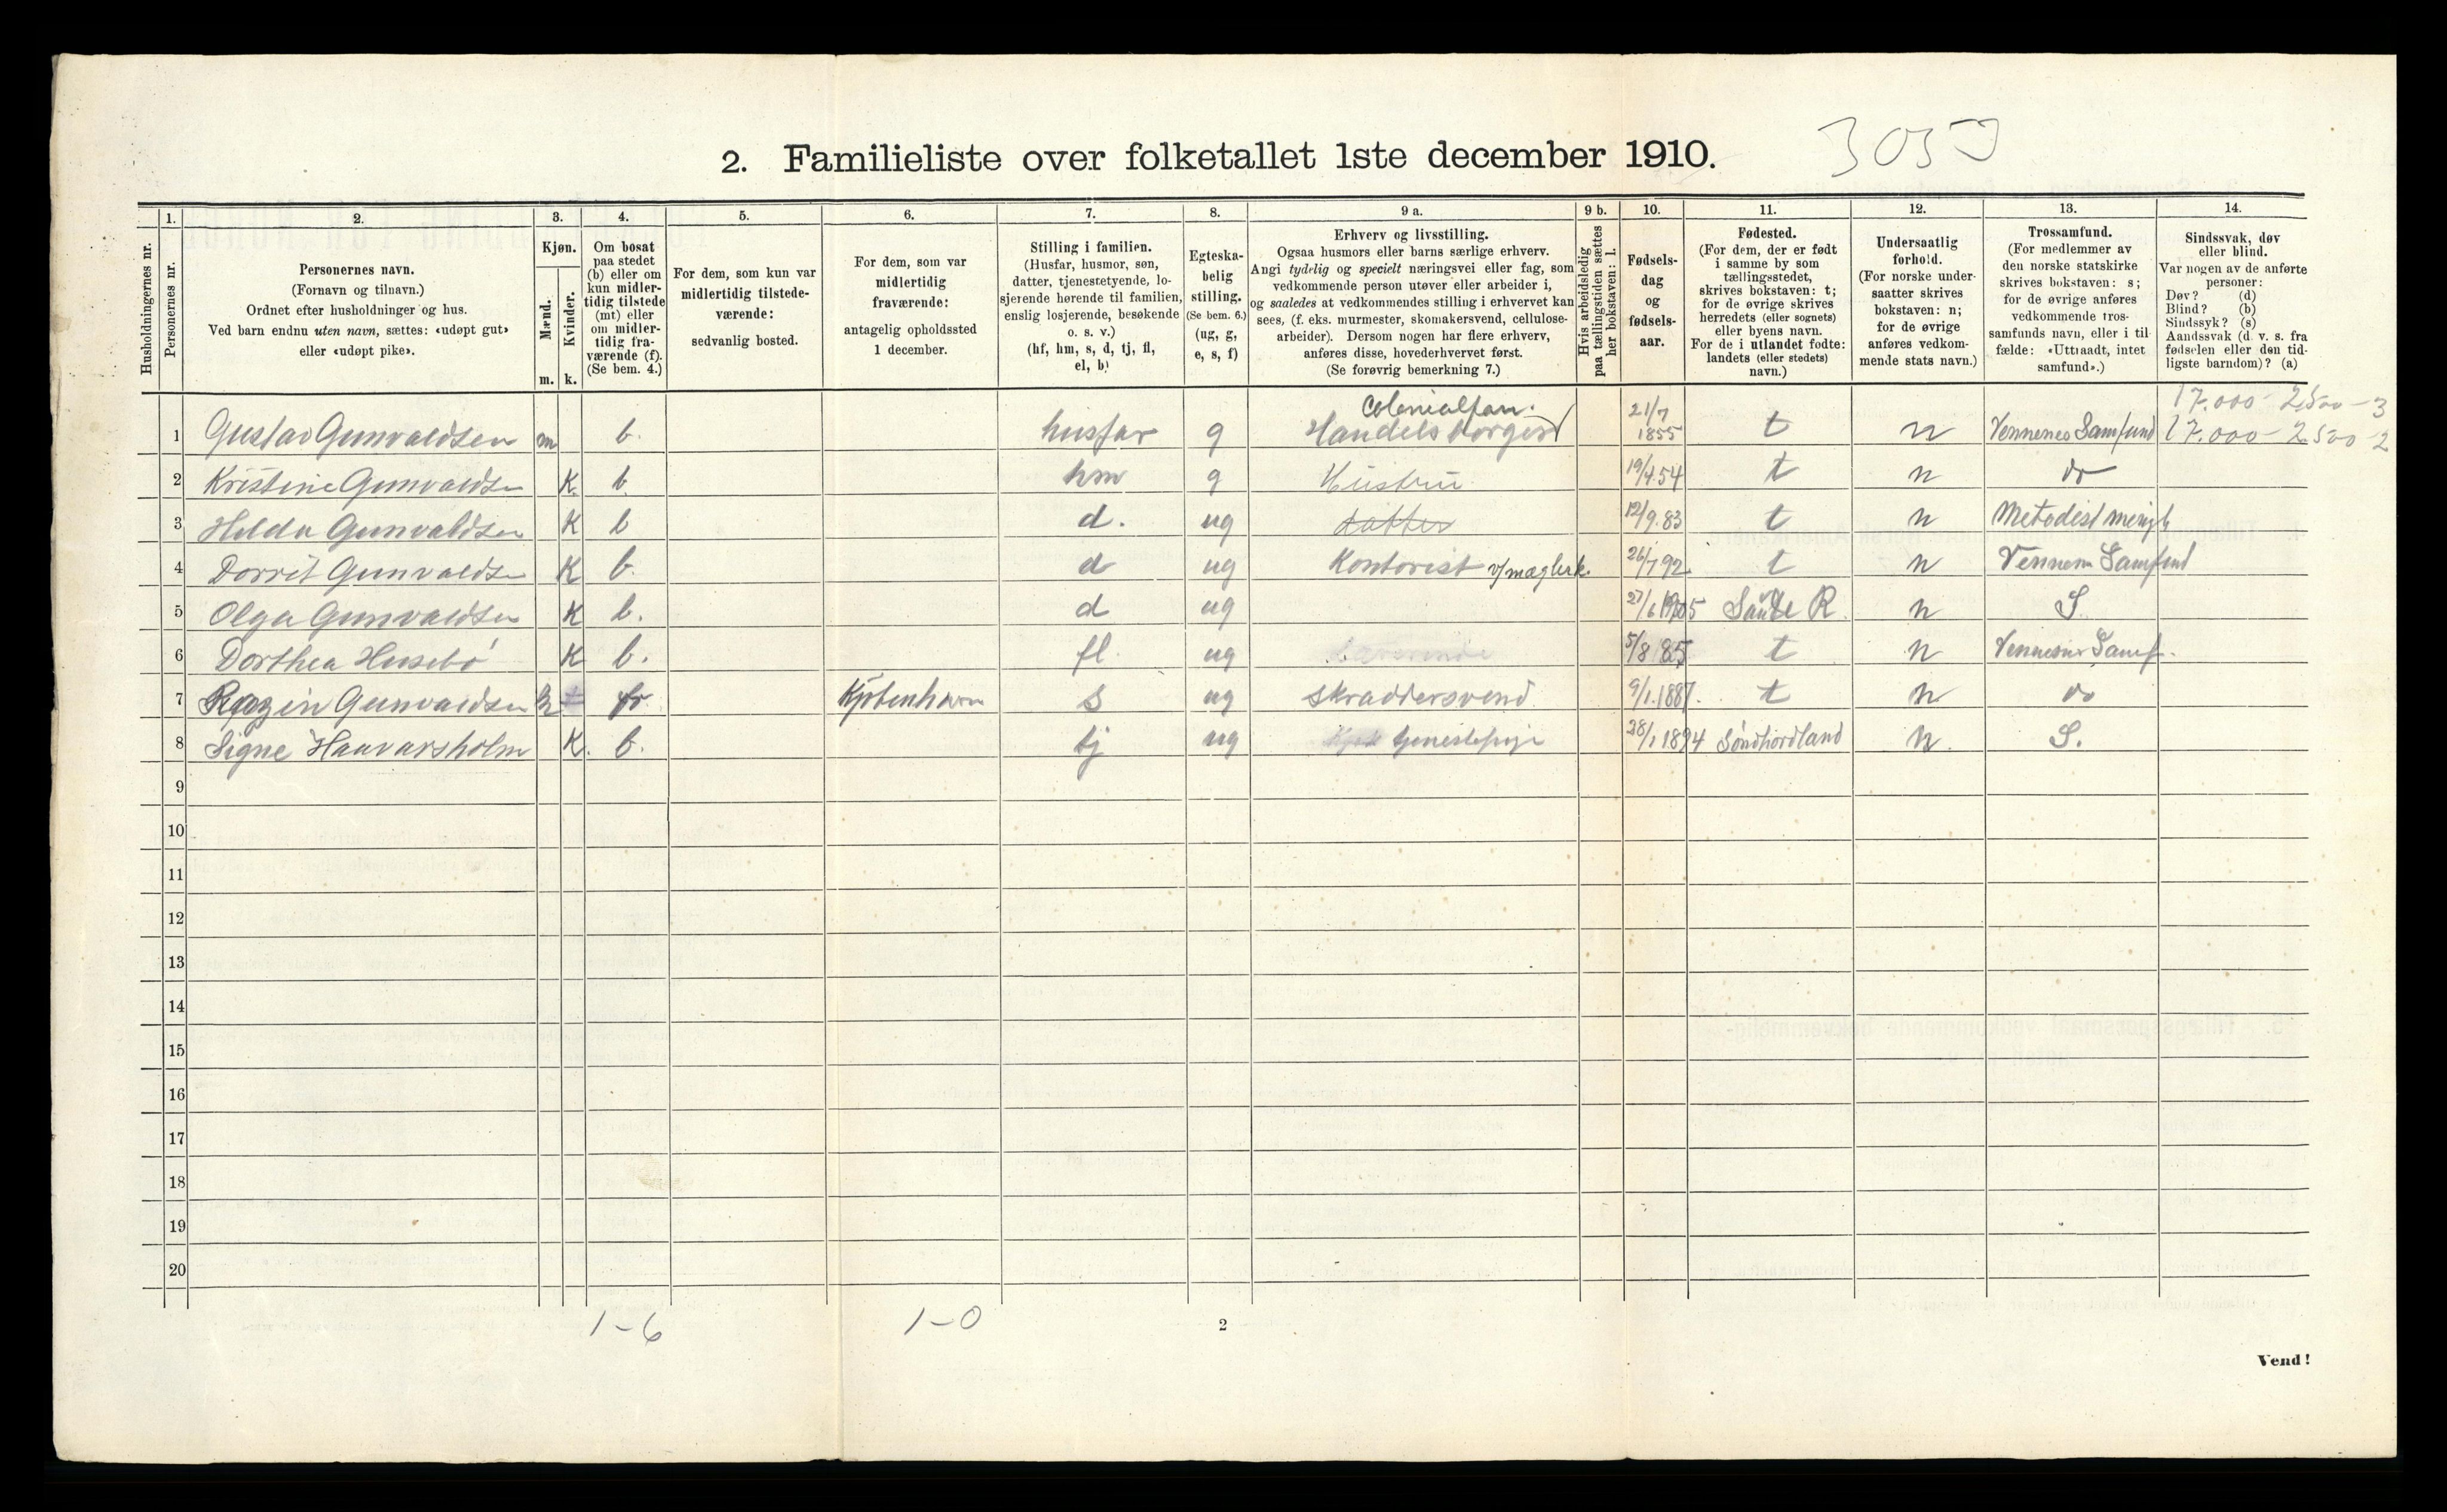 2. Familieliste over folketallet 1ste december 1910.
1. 2. 3. 4. 5. 6. 7. 8. 9 a. 9 b. 10. 11. 12. 13. 14.
Husholdningernes nr.
Personernes nr.
Personernes navn.
(Fornavn og tilnavn.)
Ordnet efter husholdninger og hus.
Ved barn endnu uten navn, sættes: «udøpt gut»
eller «udøpt pike».
Kjøn.
Mænd.
Kvinder.
m. k.
Om bosat
paa stedet
(b) eller om
kun midler-
tidig tilstede
(mt) eller
om midler-
tidig fra-
værende (f).
(Se bem. 4.)
For dem, som kun var
midlertidig tilstede-
værende:
sedvanlig bosted.
For dem, som var
midlertidig
fraværende:
antagelig opholdssted
1 december.
Stilling i familien.
(Husfar, husmor, søn,
datter, tjenestetyende, lo-
sjerende hørende til familien,
enslig losjerende, besøkende
o. s. v.)
(hf, hm, s, d, tj, fl,
el, b)
Egteska-
belig
stilling.
(Se bem. 6.)
(ug, g,
e, s, f)
Erhverv og livsstilling.
Ogsaa husmors eller barns særlige erhverv.
Angi tydelig og specielt næringsvei eller fag, som
vedkommende person utøver eller arbeider i,
og saaledes at vedkommendes stilling i erhvervet kan
sees, (f. eks. murmester, skomakersvend, cellulose-
arbeider). Dersom nogen har flere erhverv,
anføres disse, hovederhvervet først.
(Se forøvrig bemerkning 7.)
Hvis arbeidsledig
paa tællingstiden sættes
her bokstaven: l.
Fødsels-
dag
og
fødsels-
aar.
Fødested.
(For dem, der er født
i samme by som
tællingsstedet,
skrives bokstaven: t;
for de øvrige skrives
herredets (eller sognets)
eller byens navn.
For de i utlandet fødte:
landets (eller stedets)
navn.)
Undersaatlig
forhold.
(For norske under-
saatter skrives
bokstaven: n;
for de øvrige
anføres vedkom-
mende stats navn.)
Trossamfund.
(For medlemmer av
den norske statskirke
skrives bokstaven: s;
for de øvrige anføres
vedkommende tros-
samfunds navn, eller i til-
fælde: «Uttraadt, intet
samfund».)
Sindssvak, døv
eller blind.
Var nogen av de anførte
personer:
Døv? (d)
Blind? (b)
Sindssyk? (s)
Aandssvak (d. v. s. fra
fødselen eller den tid-
ligste barndom)? (a)
Colonialforr. 17.000 - 2500 - 3
1 Gustav Gunvaldsen m b. husfar g Handelsborger 21/7 1855 t n Vennenes Samfund 17.000 - 2500 - 2
2 Kristine Gunvaldsen K. b. hm g Hustru 19/4.54 t n do
3 Helda Gunvaldsen K b d. ug datter 12/9.83 t n Metodist menigh
4 Dorrit Gunvaldsen K b. d ug Kontorist v/mæglerk. 26/7 92 t n Vennern Samfund
5 Olga Gunvaldsen K b. d ug 27/6 1905 R. n S.
6 Dorthea Husebö K b. fl ug 5/8 85 t n Vennernes Samf.
7 Gunvaldsen fr Kjöbenhavn s ug skraddersvend 9/1.1887. t n do
8 Signe Haavarsholm K. b. tj ug tjenestepige 28/1 1894 Söndhordland n. S.
9
10
11
12
13
14
15
16
17
18
19
20
1-6 1-0 2
Vend!